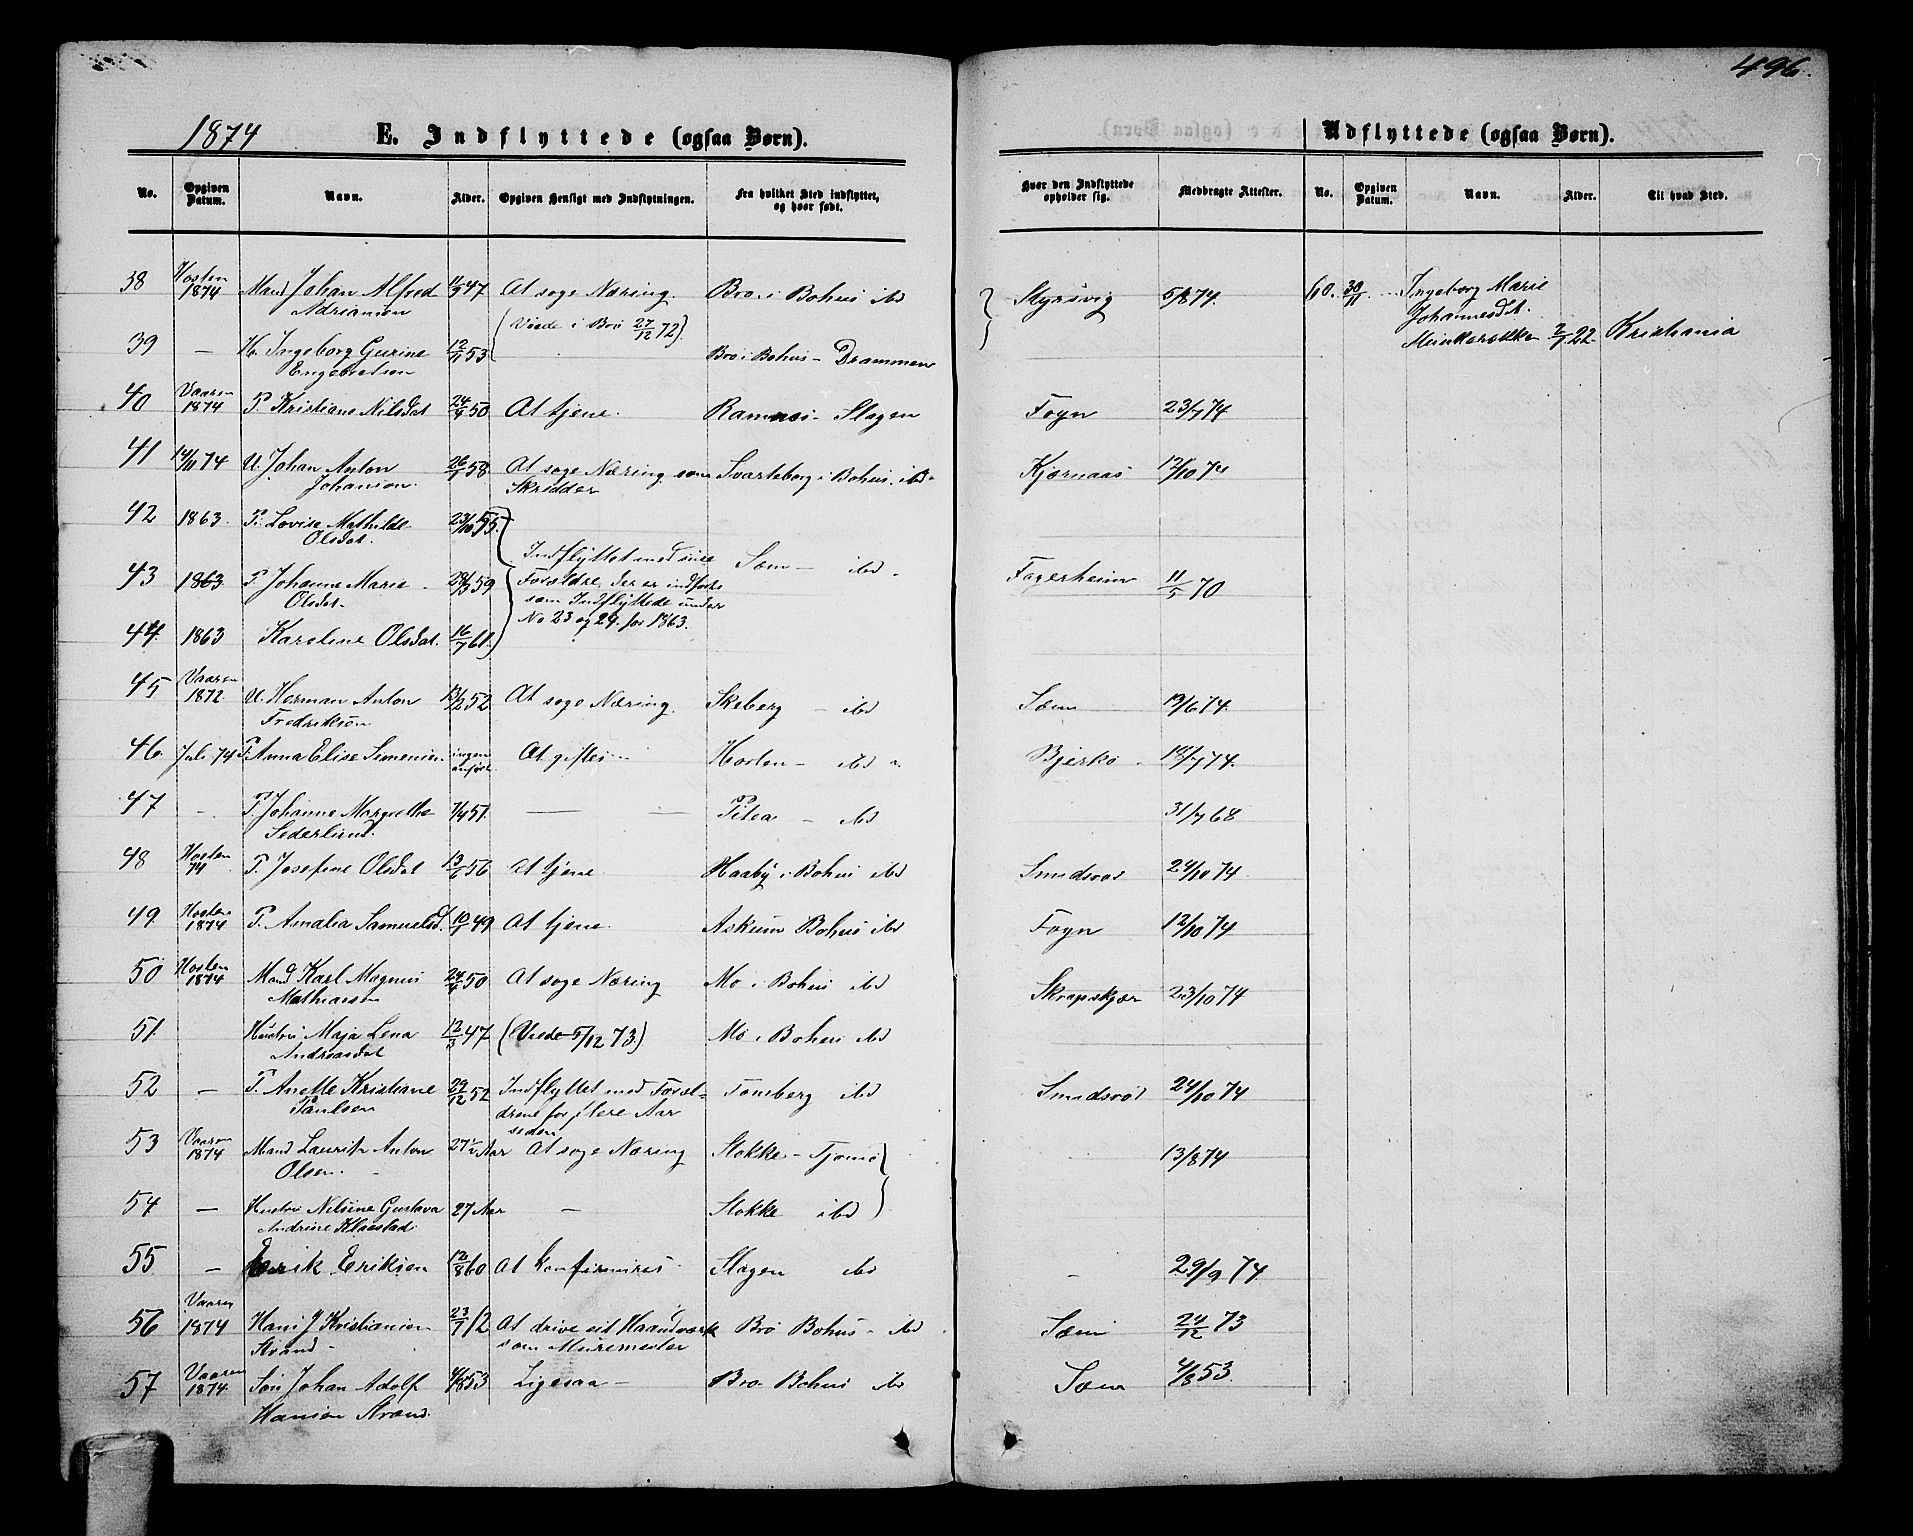 496.
1874 E. Indflyttede (ogsaa Børn). Udflyttede (ogsaa Børn).
No. Opgiven Datum. Navn. Alder. Opgiven Hensigt med Indflytningen. Fra hvilket Sted indflyttet, og hvor født. Hvor den Indflyttede opholder sig. Medbragte Attester. No. Opgiven Datum. Navn. Alder. Til hvad Sted.
38 Høsten 1874 Mand Johan Alfred 47 At søge Næring. Bro i Bohus ibd Styrsvig 5/8 74. 60. 30/11 Ingeborg Marie
Adriansen (Viede i Bro 27/12 72). Johannesdt.
39 — H. Ingeborg Gurine 12/9 53 Bro i Bohus - Drammen 2/7 22 Kristiania
Engebretsen
40 Vaaren 1874 P. Kristiane Nilsdat 24/9 50 At tjene. Ramnes - Slagen Føyn 23/7 74
41 14/11 74 U. Johan Anton 26/5 58 At søge Næring som Svarteborg i Bohus. ibd Kjærnaas 12/10 74
Johanson. Skrædder
42 1863. P. Lovise Mathilde 23/10 55.
Olsdat. Indflyttet med sine Sæm — ibd
43 1863 P. Johanne Marie 28/3 59 Forældre, der er indførte Fagerheim 11/5 70
Olsdat. som Indflyttede under
44 1863 Karoline Olsdat. 16/7 61. No 23 og 24 for 1863.
45 Vaaren 1872 U. Herman Anton 13/12 52 At søge Næring. Skeberg — ibd Sæm 19/6 74.
Fredriksøn
46 Juli 74 P. Anna Elise Simensen ingen anført At giftes Horten — ibd Bjerkø 18/7 74.
47 - P. Johanne Margrethe 7/4 51. — — Pitea — ibd 31/7 68
Sederlund.
48 Høsten 74 P. Josefine Olsdat 13/6 56 At tjene Haaby i Bohus ibd Smidsrød 24/10 74
49 Høsten 1874 P. Amalia Samuelsd. 10/1 49 At tjene. Askum Bohus ibd Føyn 12/10 74
50 Høsten 1874 Mand Karl Magnus 24/4 50 At søge Næring Mo i Bohus ibd 23/10 74
Mathiasen
51. Hustru Maja Lena 12/3 47 (Viede 5/12 73) Mo i Bohus ibd
Andreasdat
52 — P. Anette Kristiane 29/12 52 Indflyttet med Foræl- Tønsberg ibd Smidsrød 24/10 74
Paulsen drene for flere Aar
siden
53 Vaaren 1874 Mand Laurits Anton 27½ Aar At søge Næring Stokke - Tjømø 13/8 74
Olsen.
54 — Hustru Nilsine Gustava 27 Aar — Stokke ibd
Andrine Klaastad
55 — Erik Eriksen 12/8 60 At konfirmires Slagen ibd - 29/9 74
56 Vaaren 1874 Hans J Kristiansen 23/7 12 At drive sit Haandværk Bro Bohus - ibd Sæm 24/12 73
Strand som Muremester
57 Vaaren 1874 Søn Johan Adolf 4/8 53 Ligesaa — Bro Bohus ibd Sæm 4/8 53.
Hansen Strand.